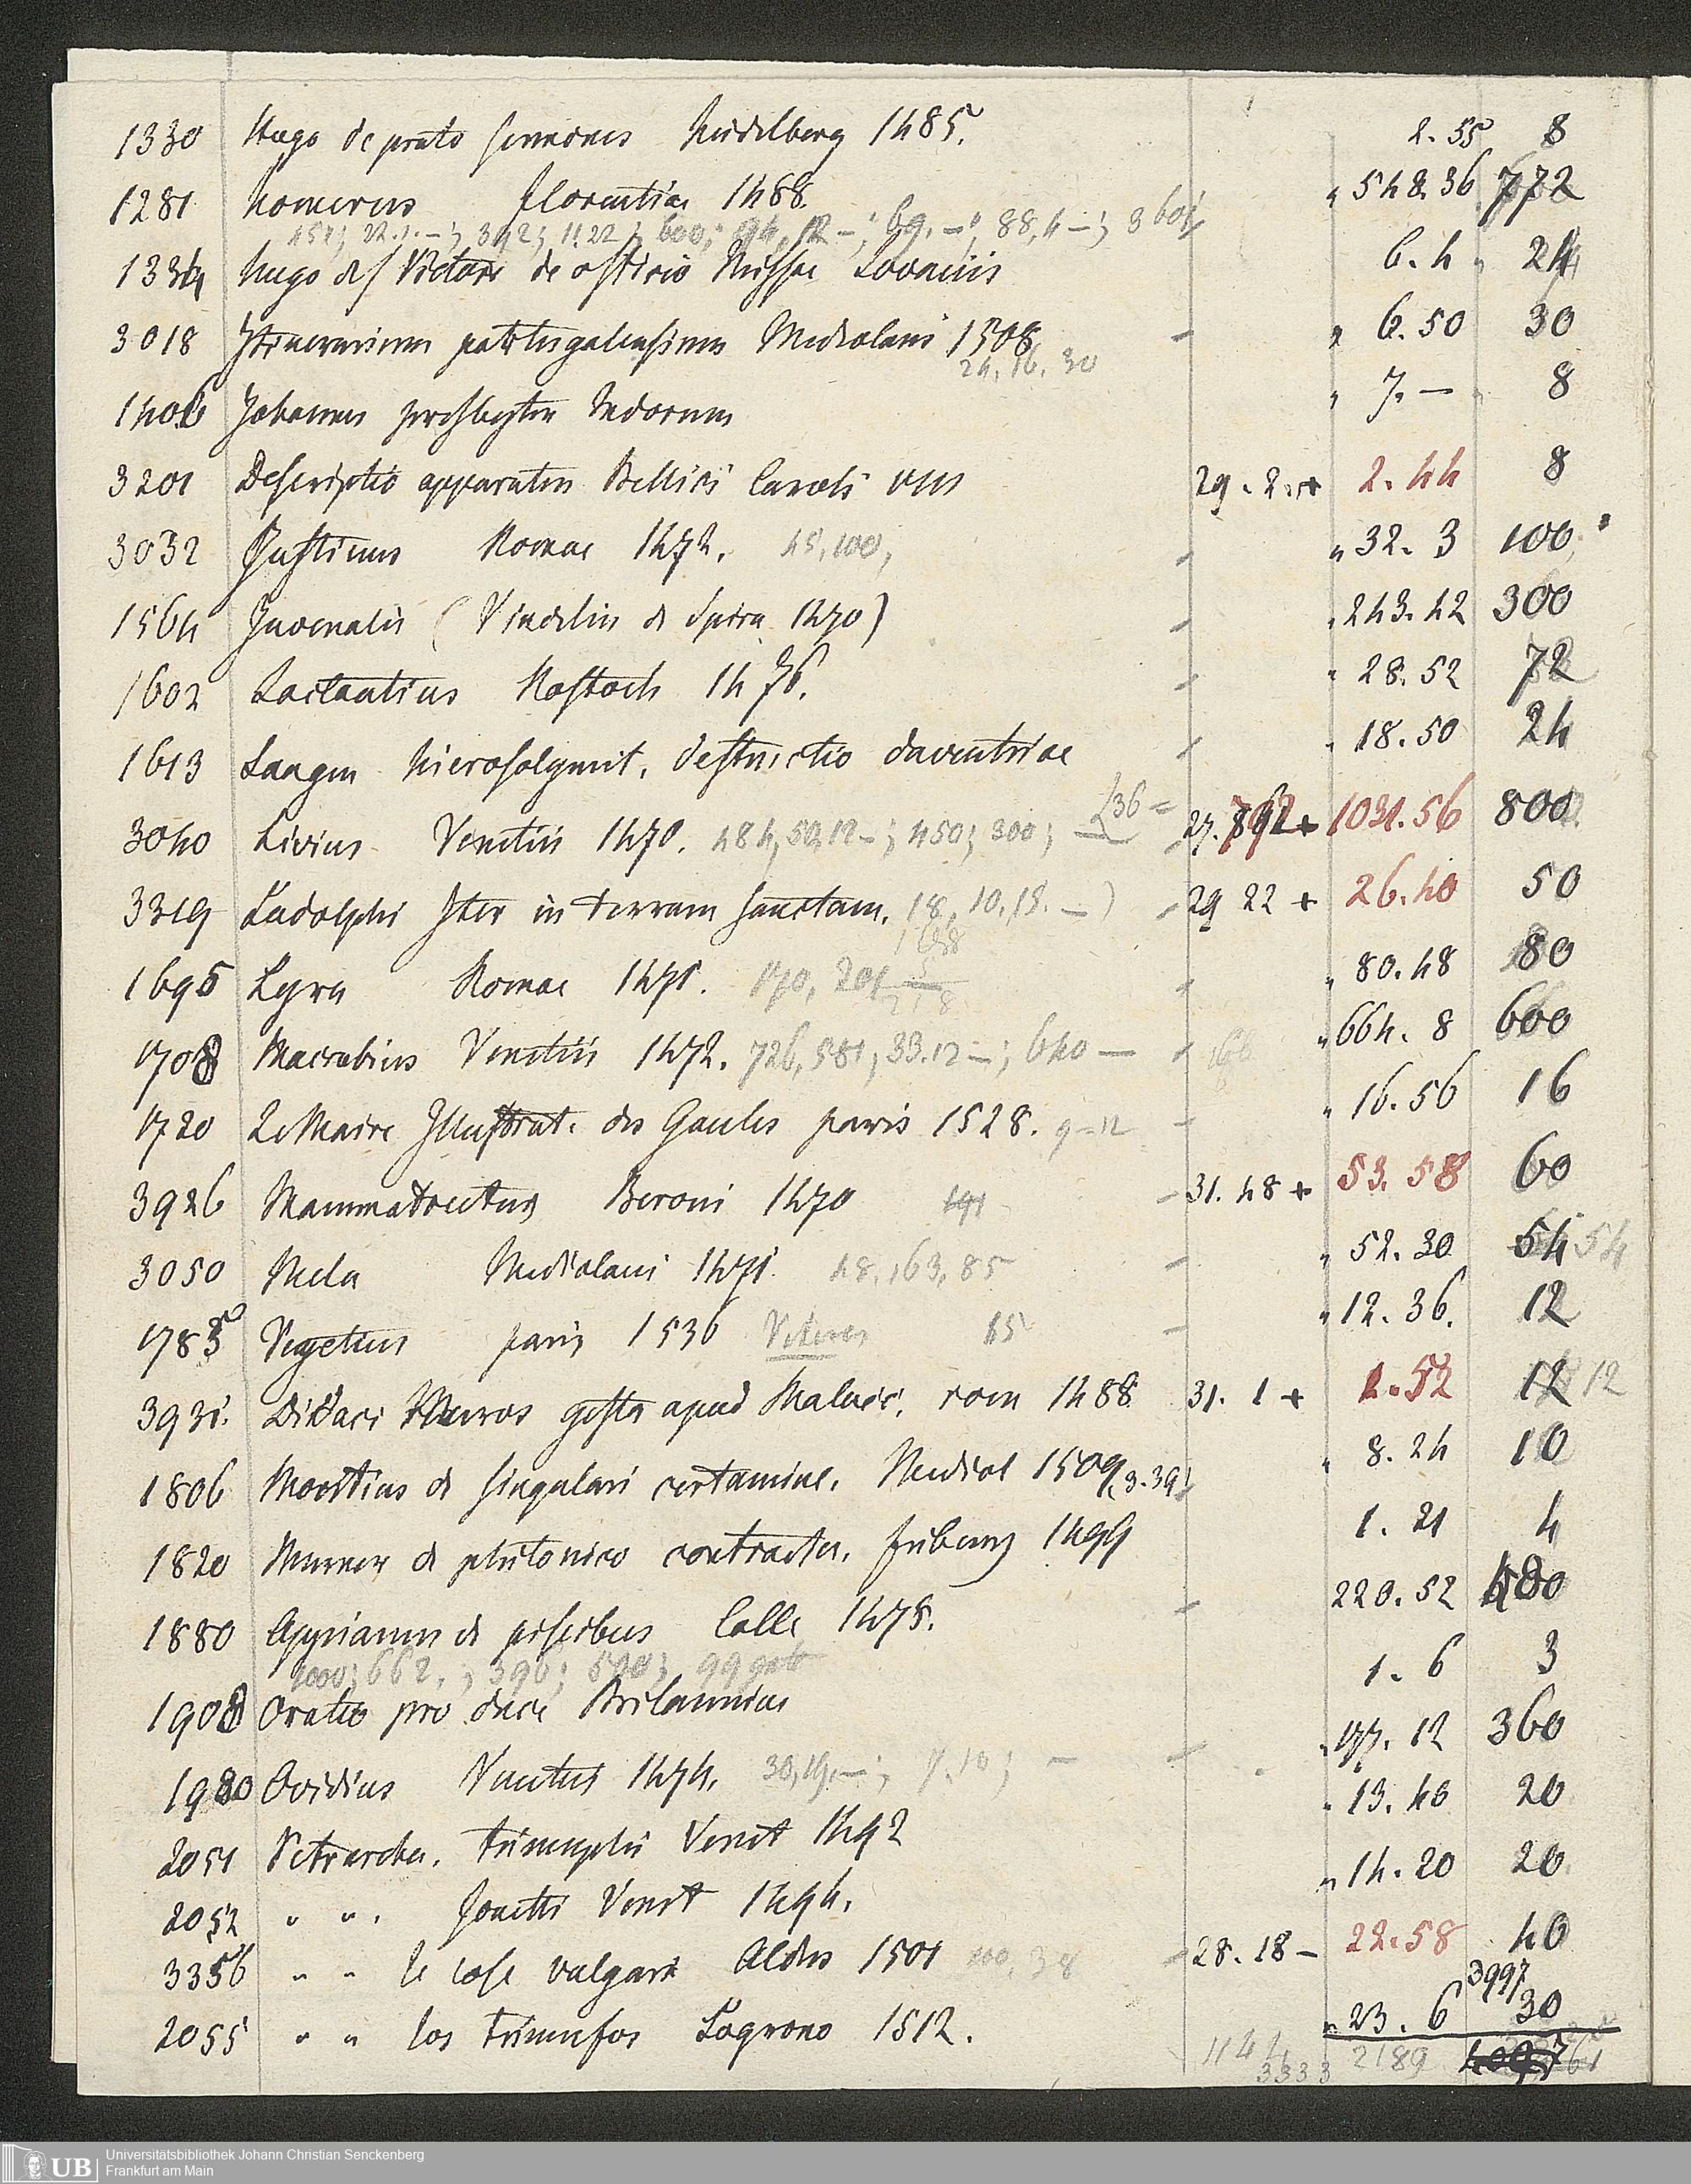 1330 Hugo de prato sermones Heidelberg 1485. 2. 55 8
1281 Homerus florentiae 1488. 548. 36 772
88, 4 –;
1334 Hugo de S Victore de officio Missae Lovaniis 6. 4 24
3018 Itinerarium portugalensium Mediolani 1508 6. 50 30
24, 16, 30
1406 Johannes presbyter Indorum 7. — 8
3201 Descriptio apparatus Bellici Caroli 29. 2. + 2. 44 8
3032 Justinus Romae 1472. 45, 100, 32. 3 100
1564 Juvenalis (Vindelin de Spira 1470) 243. 42 300
1602 Lactantius Rostoch 1476. 28. 52 72
1613 Langen hierosolymit. destructio daventriae 18. 50 24
3040 Livius Venetiis 1470. 484, 50, 12 –; 450; 300; 36 1031. 56 800
3319 Ludolphi Iter in terram sanctam. 18, 10, 18. – 29 22 + 26. 40 50
1695 Lyra Romae 1471. 170, 201 80. 48 80
1708 Macrobius Venetiis 1472. 726, 581, 33. 12 –; 640 — 664. 8 600
1720 Le Maire Illustrat. des Gaules paris 1528. 9 – 12 16. 56 16
3926 Mammatrectus Beroni 1470 191 31. 48 + 53. 58 60
3050 Mela Mediolani 1471. 48, 163, 85 52. 30 54 54
1785 Vegetius paris 1536 65 12. 36. 12
3931. Didaci Muros gesta apud Malac. rom 1488 31. 1 + 2. 52 12 12
1806 de singulari certamine. Mediol 1509. 3. 39 8. 24 10
1820 Murner de phitonico contractu. friburg 1499 1. 21 4
1880 Oppianus de piscibus Colle 1478. 220. 52 480
1000; 662. ; 396; 500; 99
1908 Oratio pro duce Britanniae 1. 6 3
1980 Ovidius Venetiis 1474. 30, 19. –; 7. 10; – 177. 12 360
2051 Petrarcha. triumphi Venet 1492 13. 40 20
2052 " " . sonetti Venet 1494. 14. 20 20
3356 " " le cose vulgari Aldus 1501 100, 38 28. 18 – 22. 58 40
3997
2055 " " los triumfos Logrono 1512. 23. 6 30
3333 2189
UB Universitätsbibliothek Johann Christian Senckenberg
Frankfurt am Main